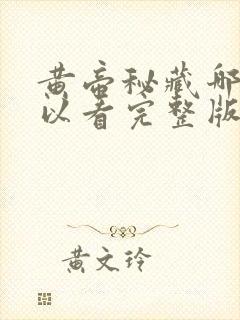 黄帝秘藏哪
以看完整版
黄文玲